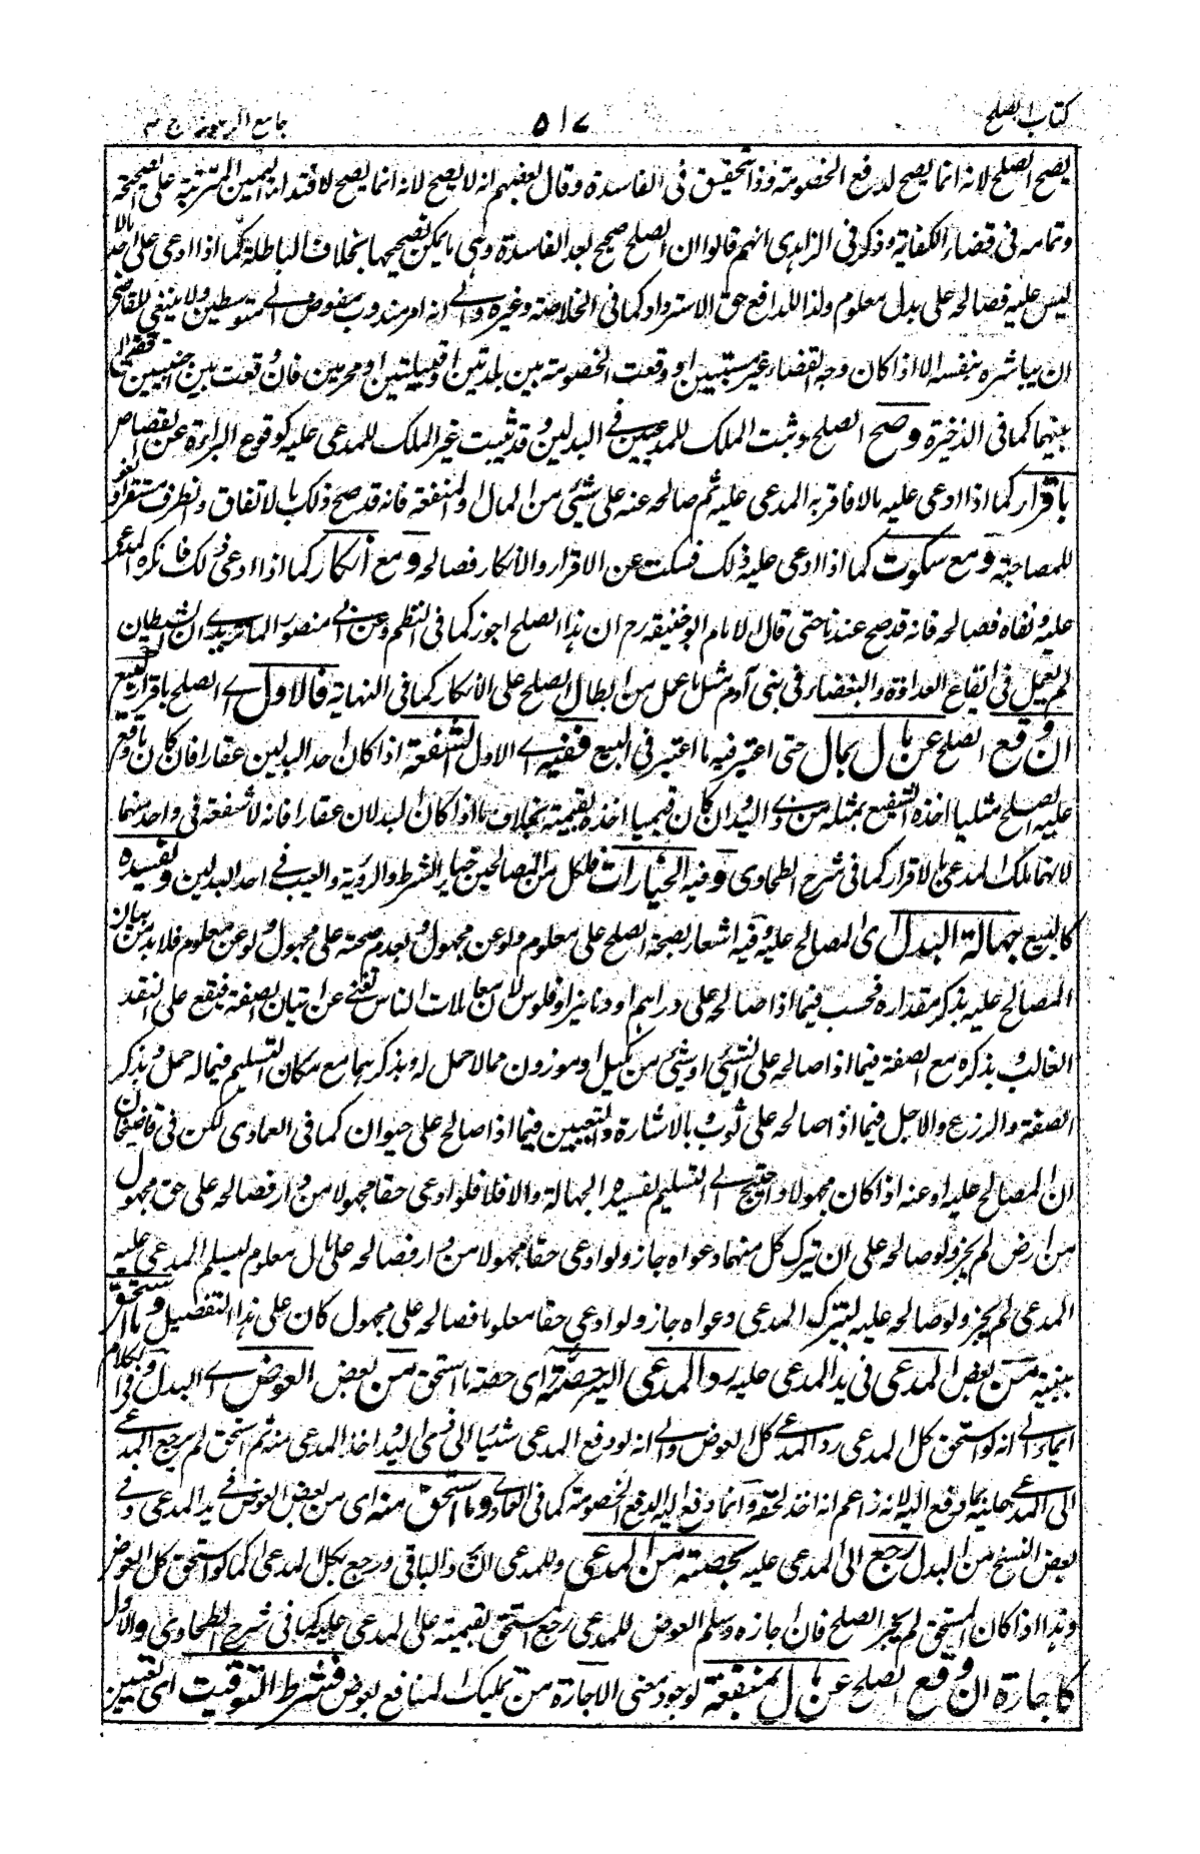 كتاب الصلح
٥١٧
جامع الرموز ج ٣
يصح الصلح لانه انما يصح لدفع الخصومة وذا تحقيق فى الفاسدة وقال بعضهم انه لا يصح لانه انما يصح لافتداء اليمين المترتبة على الصحيحة
وتمامه فى قضاء الكفاية وذكر فى الزاهدى انهم قالوا ان الصلح صحيح بعد الفاسدة وهى ما يمكن تصحيحها بخلاف الباطلة كما اذا ادعى على احد مالا
ليس عليه فصالحه على بدل معلوم ولذا للدافع حق الاسترداد كما فى الخلاصة وغيره والى انه امر مندوب مفوض الى المتوسطين ولا ينبغى للقاضى
ان يباشره بنفسه الا اذا كان وجه القضاء غير مستبين او وقعت الخصومة بين بلدتين او قبيلتين او محرمين فان وقعت بين اجنبيين قضى
بينهما كما فى الذخيرة وصح الصلح وثبت الملك للمدعيين فى البدلين وقد ثبت غير الملك للمدعى عليه كوقوع البراءة عن القصاص
باقرار كما اذا ادعى عليه مالا فاقر به المدعى عليه ثم صالحه عنه على شيئ من المال او المنفعة فانه قد صح ذلك بالاتفاق والظرف مستقر او لغو
للمصاحبة ومع سكوت كما اذا ادعى عليه ذلك فسكت عن الاقرار والانكار فصالحه ومع انكار كما اذا ادعى ذلك فانكره المدعى
عليه ونفاه فصالحه فانه قد صح عندنا حتى قال الامام ابو حنيفة رح ان هذا الصلح اجوز كما فى النظم وعن ابى منصور الماتريدى ان الشيطان
لم يعمل فى ايقاع العداوة والبغضاء فى بنى آدم مثل ما عمل من ابطال الصلح على الانكار كما فى النهاية فالاول اى الصلح باقرار كالبيع
ان وقع الصلح عن مال بمال حتى اعتبر فيه ما اعتبر فى البيع ففيه اى الاول الشفعة اذا كان احد البدلين عقارا فان كان ما وقع
عليه الصلح مثليا اخذه الشفيع بمثله من ذى اليد وان كان قيميا اخذه بقيمته بخلاف ما اذا كان البدلان عقارا فانه لا شفعة فى واحد منهما
لانهما ملك المدعى بالاقرار كما فى شرح الطحاوى وفيه الخيارات فلكل من المتصالحين خيار الشرط والرؤية والعيب فى احد البدلين ويفسده
كالبيع جهالة البدل اى المصالح عليه وفيه اشعار بصحة الصلح على معلوم ولو عن مجهول وبعدم صحته على مجهول ولو عن معلوم فلا بد من بيان
المصالح عليه بذكر مقداره فحسب فيما اذا صالحه على دراهم او دنانير او فلوس لان معاملات الناس تغنى عن اتيان الصفة فيقع على النقد
الغالب وبذكره مع الصفة فيما اذا صالحه على شيئ من كيل او موزون مما لا حمل له وبذكرهما مع مكان التسليم فيما له حمل وبذكر
الصفة والذرع والاجل فيما اذا صالحه على ثوب وبالاشارة والتعيين فيما اذا صالح على حيوان كما فى العمادى لكن فى قاضيخان
ان المصالح عليه او عنه اذا كان مجهولا واحتيج الى التسليم لفسده الجهالة والا فلا فلو ادعى حقا مجهولا من دار فصالحه على حق مجهول
من ارض لم يجز ولو صالحه على ان يترك كل منهما دعواه جاز ولو ادعى حقا مجهولا من دار فصالحه على مال معلوم ليسلم المدعى عليه
المدعى لم يجز ولو صالحه عليه ليترك المدعى دعواه جاز ولو ادعى حقا معلوما فصالحه على مجهول كان على هذا التفصيل وما استحق
ببينة من بعض المدعى فى يد المدعى عليه رد المدعى اليه حصته اى حصة ما استحق من بعض العوض اى البدل وفى الكلام
ايماء الى انه لو استحق كل المدعى رد المدعى كل العوض والى انه لو دفع المدعى شيئا الى ذى اليد واخذ المدعى منه ثم استحق لم يرجع المدعى
الى المدعى عليه بما دفع اليه لانه زاعم انه اخذ لحقه وانما دفع اليه لدفع الخصومة كما فى العمادى وما استحق منه اى من بعض العوض فى يد المدعى وفى
بعض النسخ من البدل رجع الى المدعى عليه بحصته من المدعى وللمدعى ان يرد الباقى ورجع بكل المدعى كما لو استحق كل العوض
وهذا اذا كان المستحق لم يجز الصلح فان اجازه وسلم العوض للمدعى رجع المستحق بقيمته على المدعى عليه كما فى شرح الطحاوى والاول
كاجارة ان وقع الصلح عن مال بمنفعة لوجود معنى الاجارة من تمليك المنافع بعوض فشرط التوقيت اى تعيين